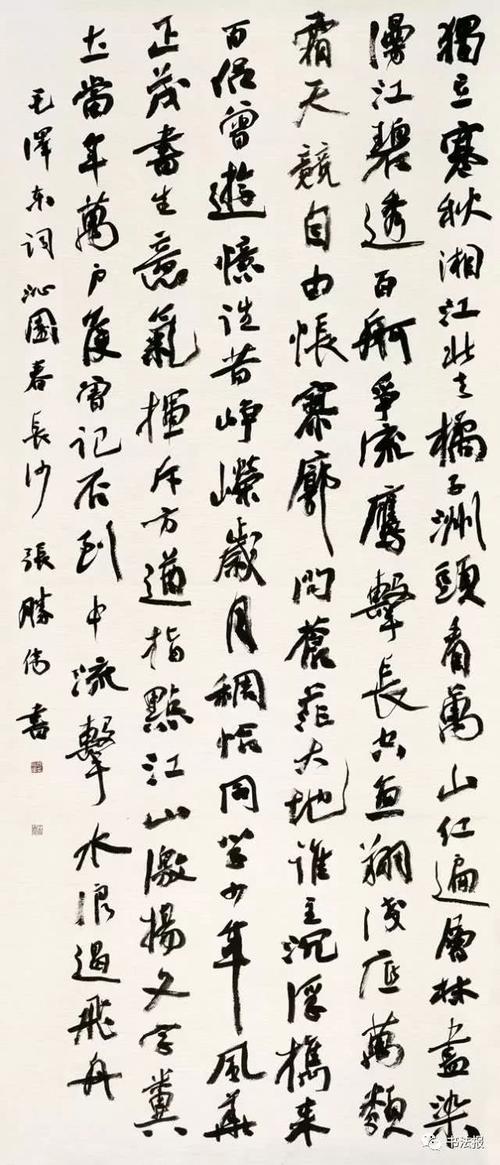 獨立寒秋湘江北去橘子洲頭看萬山紅遍層林盡染
漫江碧透百舸爭流鷹擊長空魚翔淺底萬類
霜天競自由悵寥廓問蒼茫大地誰主沉浮攜來
百侶曾遊憶往昔崢嶸歲月稠恰同學少年風華
正茂書生意氣揮斥方遒指點江山激揚文字糞
土當年萬戶侯曾記否到中流擊水浪遏飛舟
毛澤東詞沁園春長沙 張勝偉書
书法报